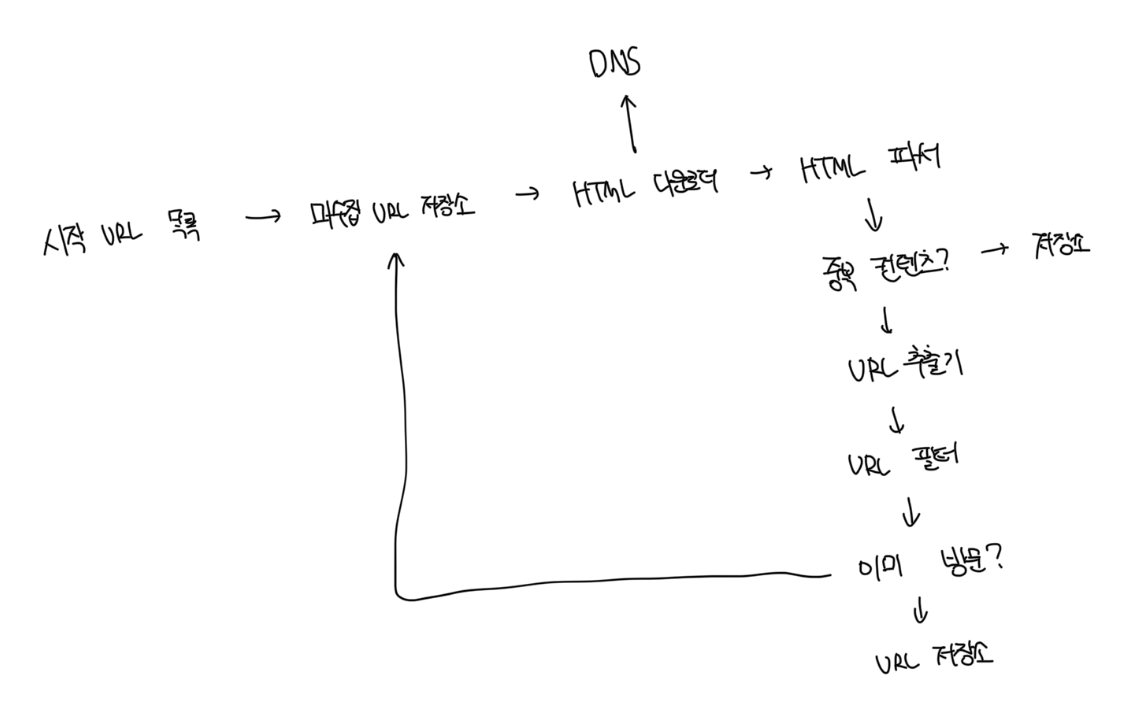 DNS
시작 URL 목록
미수집 URL 저장소
HTML 다운로더
HTML 파서
중복 컨텐츠?
저장소
URL 추출기
URL 필터
이미 방문?
URL 저장소